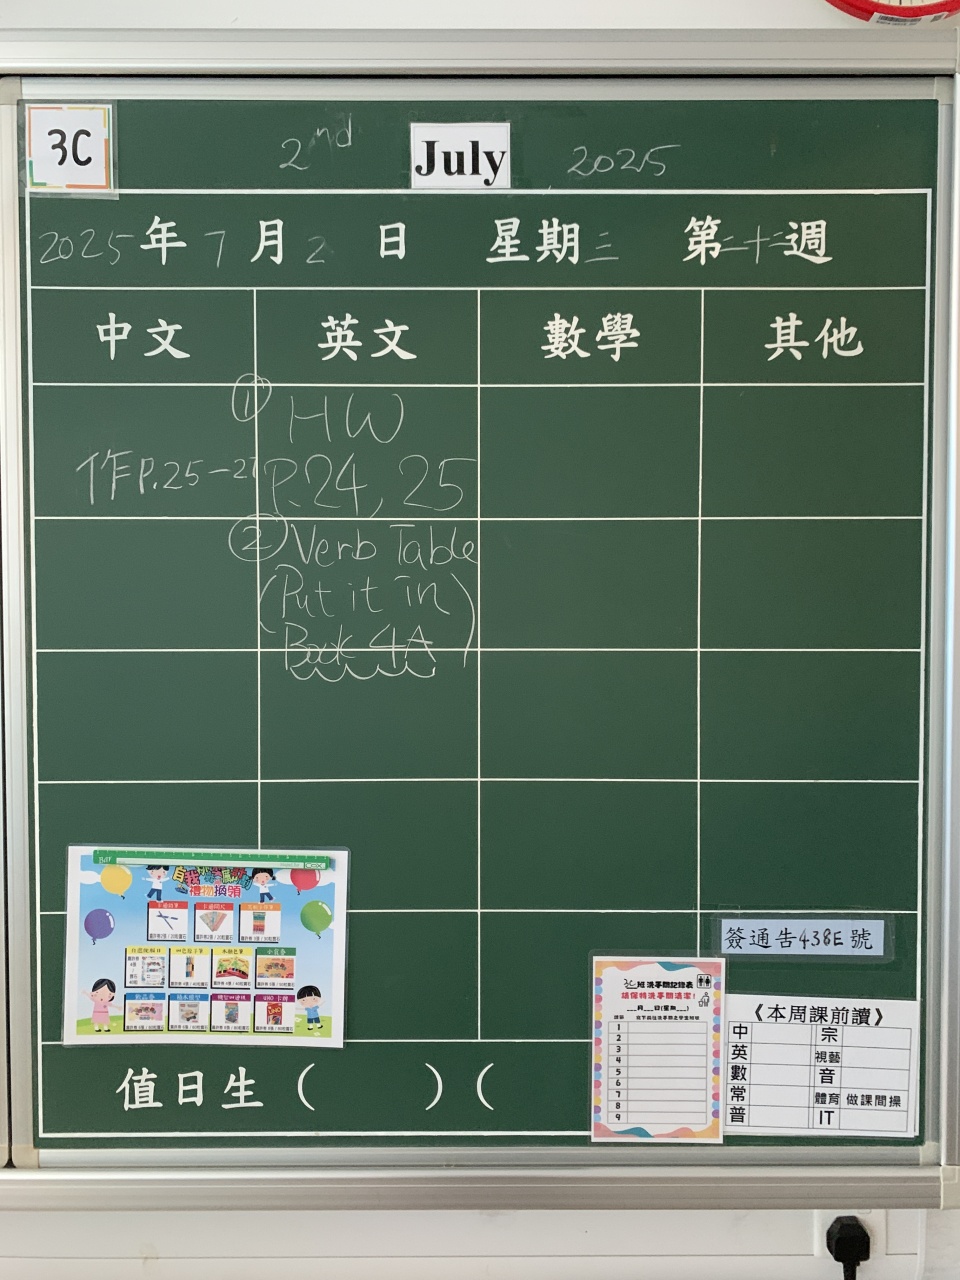 3C
2nd July 2025
2025年7月2日 星期三 第二十二週
中文 英文 數學 其他
① HW
作P.25-27
P.24, 25
② Verb Table
(Put it in
Book 4A)
禮物換領
簽通告438E號
3C班洗手間記錄表
請保持洗手間清潔!
___月___日(星期___)
1
2
3
4
5
6
7
8
9
《本周課前讀》
中 宗
英 視藝
數 音
常 體育 做課間操
普 IT
值日生 ( ) (